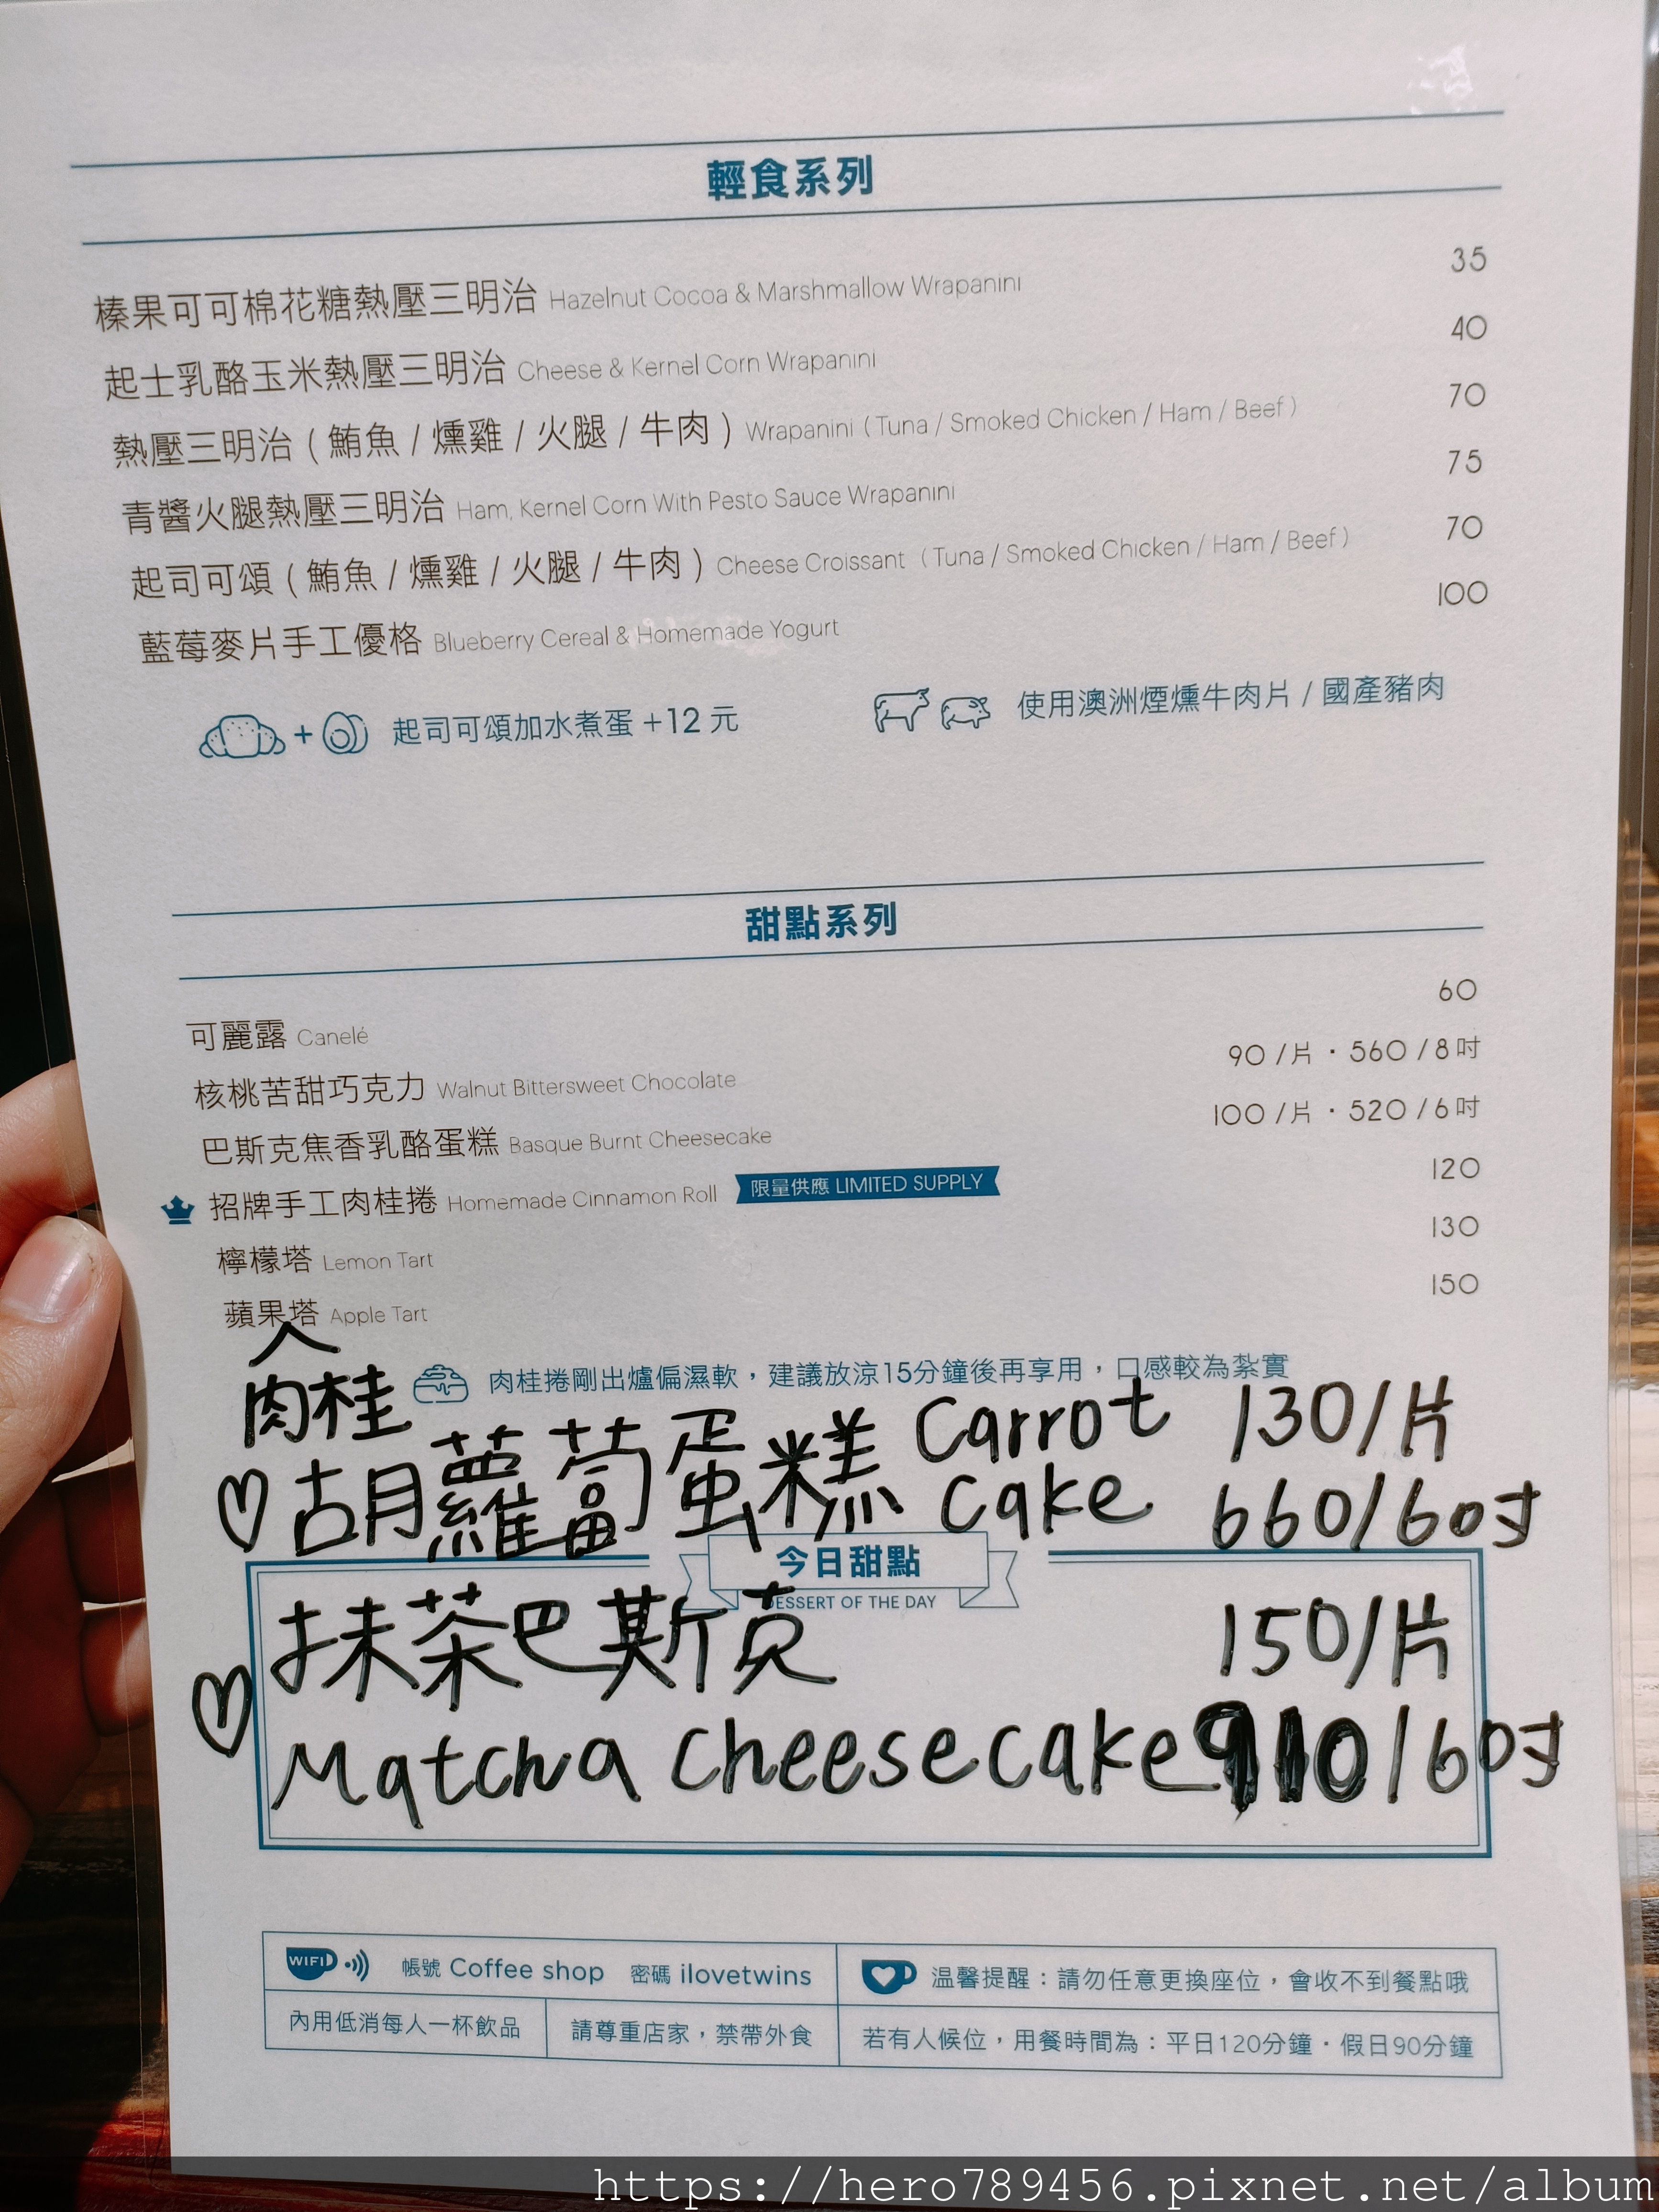 輕食系列
榛果可可棉花糖熱壓三明治 Hazelnut Cocoa & Marshmallow Wrapanini 35
起士乳酪玉米熱壓三明治 Cheese & Kernel Corn Wrapanini 40
熱壓三明治 ( 鮪魚 / 燻雞 / 火腿 / 牛肉 ) Wrapanini ( Tuna / Smoked Chicken / Ham / Beef ) 70
青醬火腿熱壓三明治 Ham, Kernel Corn With Pesto Sauce Wrapanini 75
起司可頌 ( 鮪魚 / 燻雞 / 火腿 / 牛肉 ) Cheese Croissant ( Tuna / Smoked Chicken / Ham / Beef ) 70
藍莓麥片手工優格 Blueberry Cereal & Homemade Yogurt 100
+ 起司可頌加水煮蛋 +12 元 使用澳洲煙燻牛肉片 / 國產豬肉
甜點系列
可麗露 Canelé 60
核桃苦甜巧克力 Walnut Bittersweet Chocolate 90 /片・560 /8吋
巴斯克焦香乳酪蛋糕 Basque Burnt Cheesecake 100 /片・520 /6吋
招牌手工肉桂捲 Homemade Cinnamon Roll 限量供應 LIMITED SUPPLY 120
檸檬塔 Lemon Tart 130
蘋果塔 Apple Tart 150
肉桂 肉桂捲剛出爐偏濕軟，建議放涼15分鐘後再享用，口感較為紮實
♡胡蘿蔔蛋糕 Carrot 130/片
cake 660/6吋
今日甜點
DESSERT OF THE DAY
抹茶巴斯克 150/片
♡ Matcha cheesecake 910/6吋
WIFI 帳號 Coffee shop 密碼 ilovetwins
温馨提醒：請勿任意更換座位，會收不到餐點哦
內用低消每人一杯飲品 請尊重店家，禁帶外食
若有人候位，用餐時間為：平日120分鐘・假日90分鐘
https://hero789456.pixnet.net/album